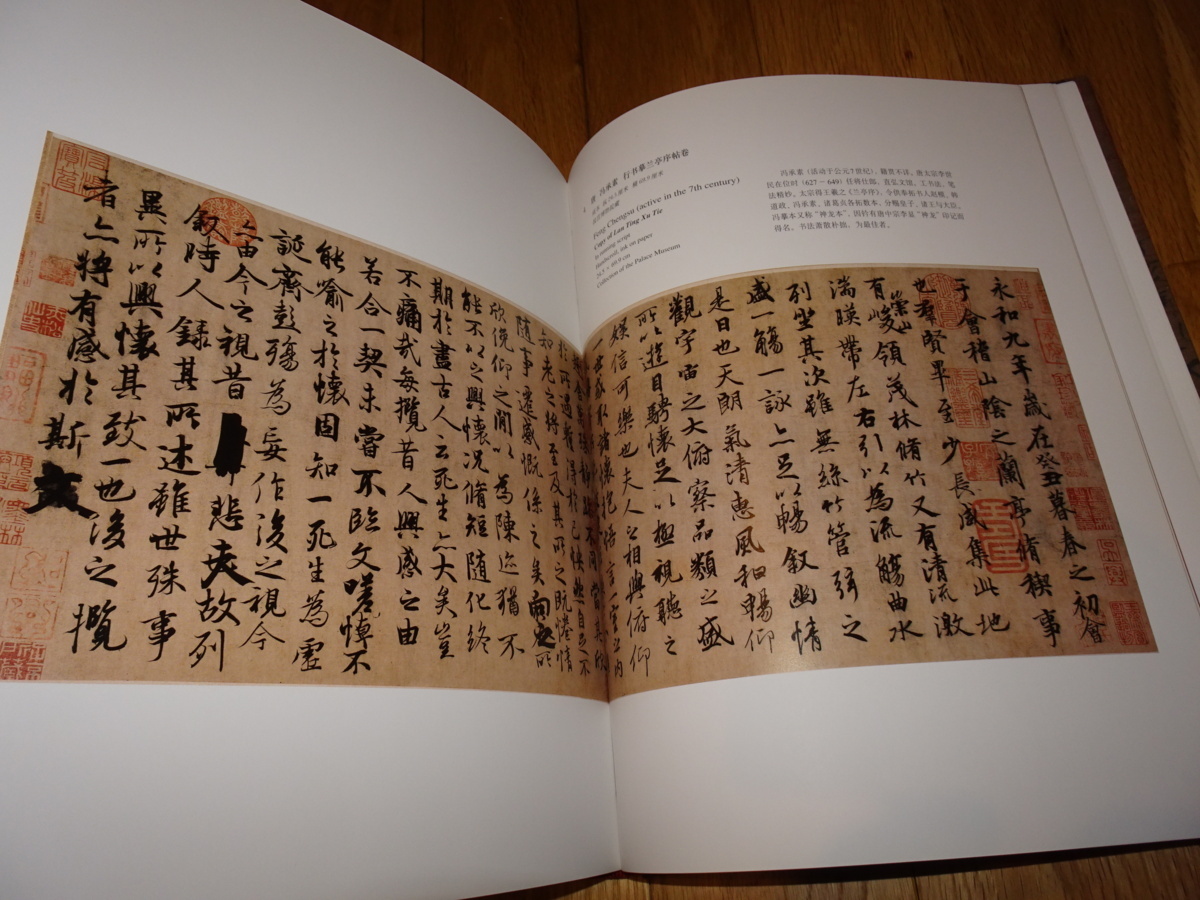 唐 冯承素 行书摹兰亭序帖卷
Feng Chengsu (active in the 7th century)
Copy of Lan Ting Xu Tie
In running script
Handscroll, ink on paper
24.5 × 69.9 cm
Collection of the Palace Museum
冯承素（活动于公元7世纪），籍贯不详。唐太宗李世
民在位时（627－649）任将仕郎、直弘文馆。工书法，笔
法精妙。太宗得王羲之《兰亭序》，令供奉拓书人赵模、韩
道政、冯承素、诸葛贞各拓数本，分赐皇子、诸王与大臣。
冯摹本又称“神龙本”，因钤有唐中宗李显“神龙”印记而
得名。书法萧散朴拙，为最佳者。
永和九年歲在癸丑暮春之初會
于會稽山陰之蘭亭脩稧事
也羣賢畢至少長咸集此地
有崇山峻領茂林脩竹又有清流激
湍暎帶左右引以為流觴曲水
列坐其次雖無絲竹管弦之
盛一觴一詠亦足以暢叙幽情
是日也天朗氣清惠風和暢仰
觀宇宙之大俯察品類之盛
所以遊目騁懷足以極視聽之
娛信可樂也夫人之相與俯仰
一世或取諸懷抱悟言一室之內
知老之將至及其所之既惓情
隨事遷感慨係之矣向之所
欣俛仰之閒以為陳迹猶不
能不以之興懷況脩短隨化終
期於盡古人云死生亦大矣豈
不痛哉每攬昔人興感之由
若合一契未嘗不臨文嗟悼不
能喻之於懷固知一死生為虛
誕齊彭殤為妄作後之視今
亦由今之視昔悲夫故列
叙時人錄其所述雖世殊事
異所以興懷其致一也後之攬
者亦將有感於斯文